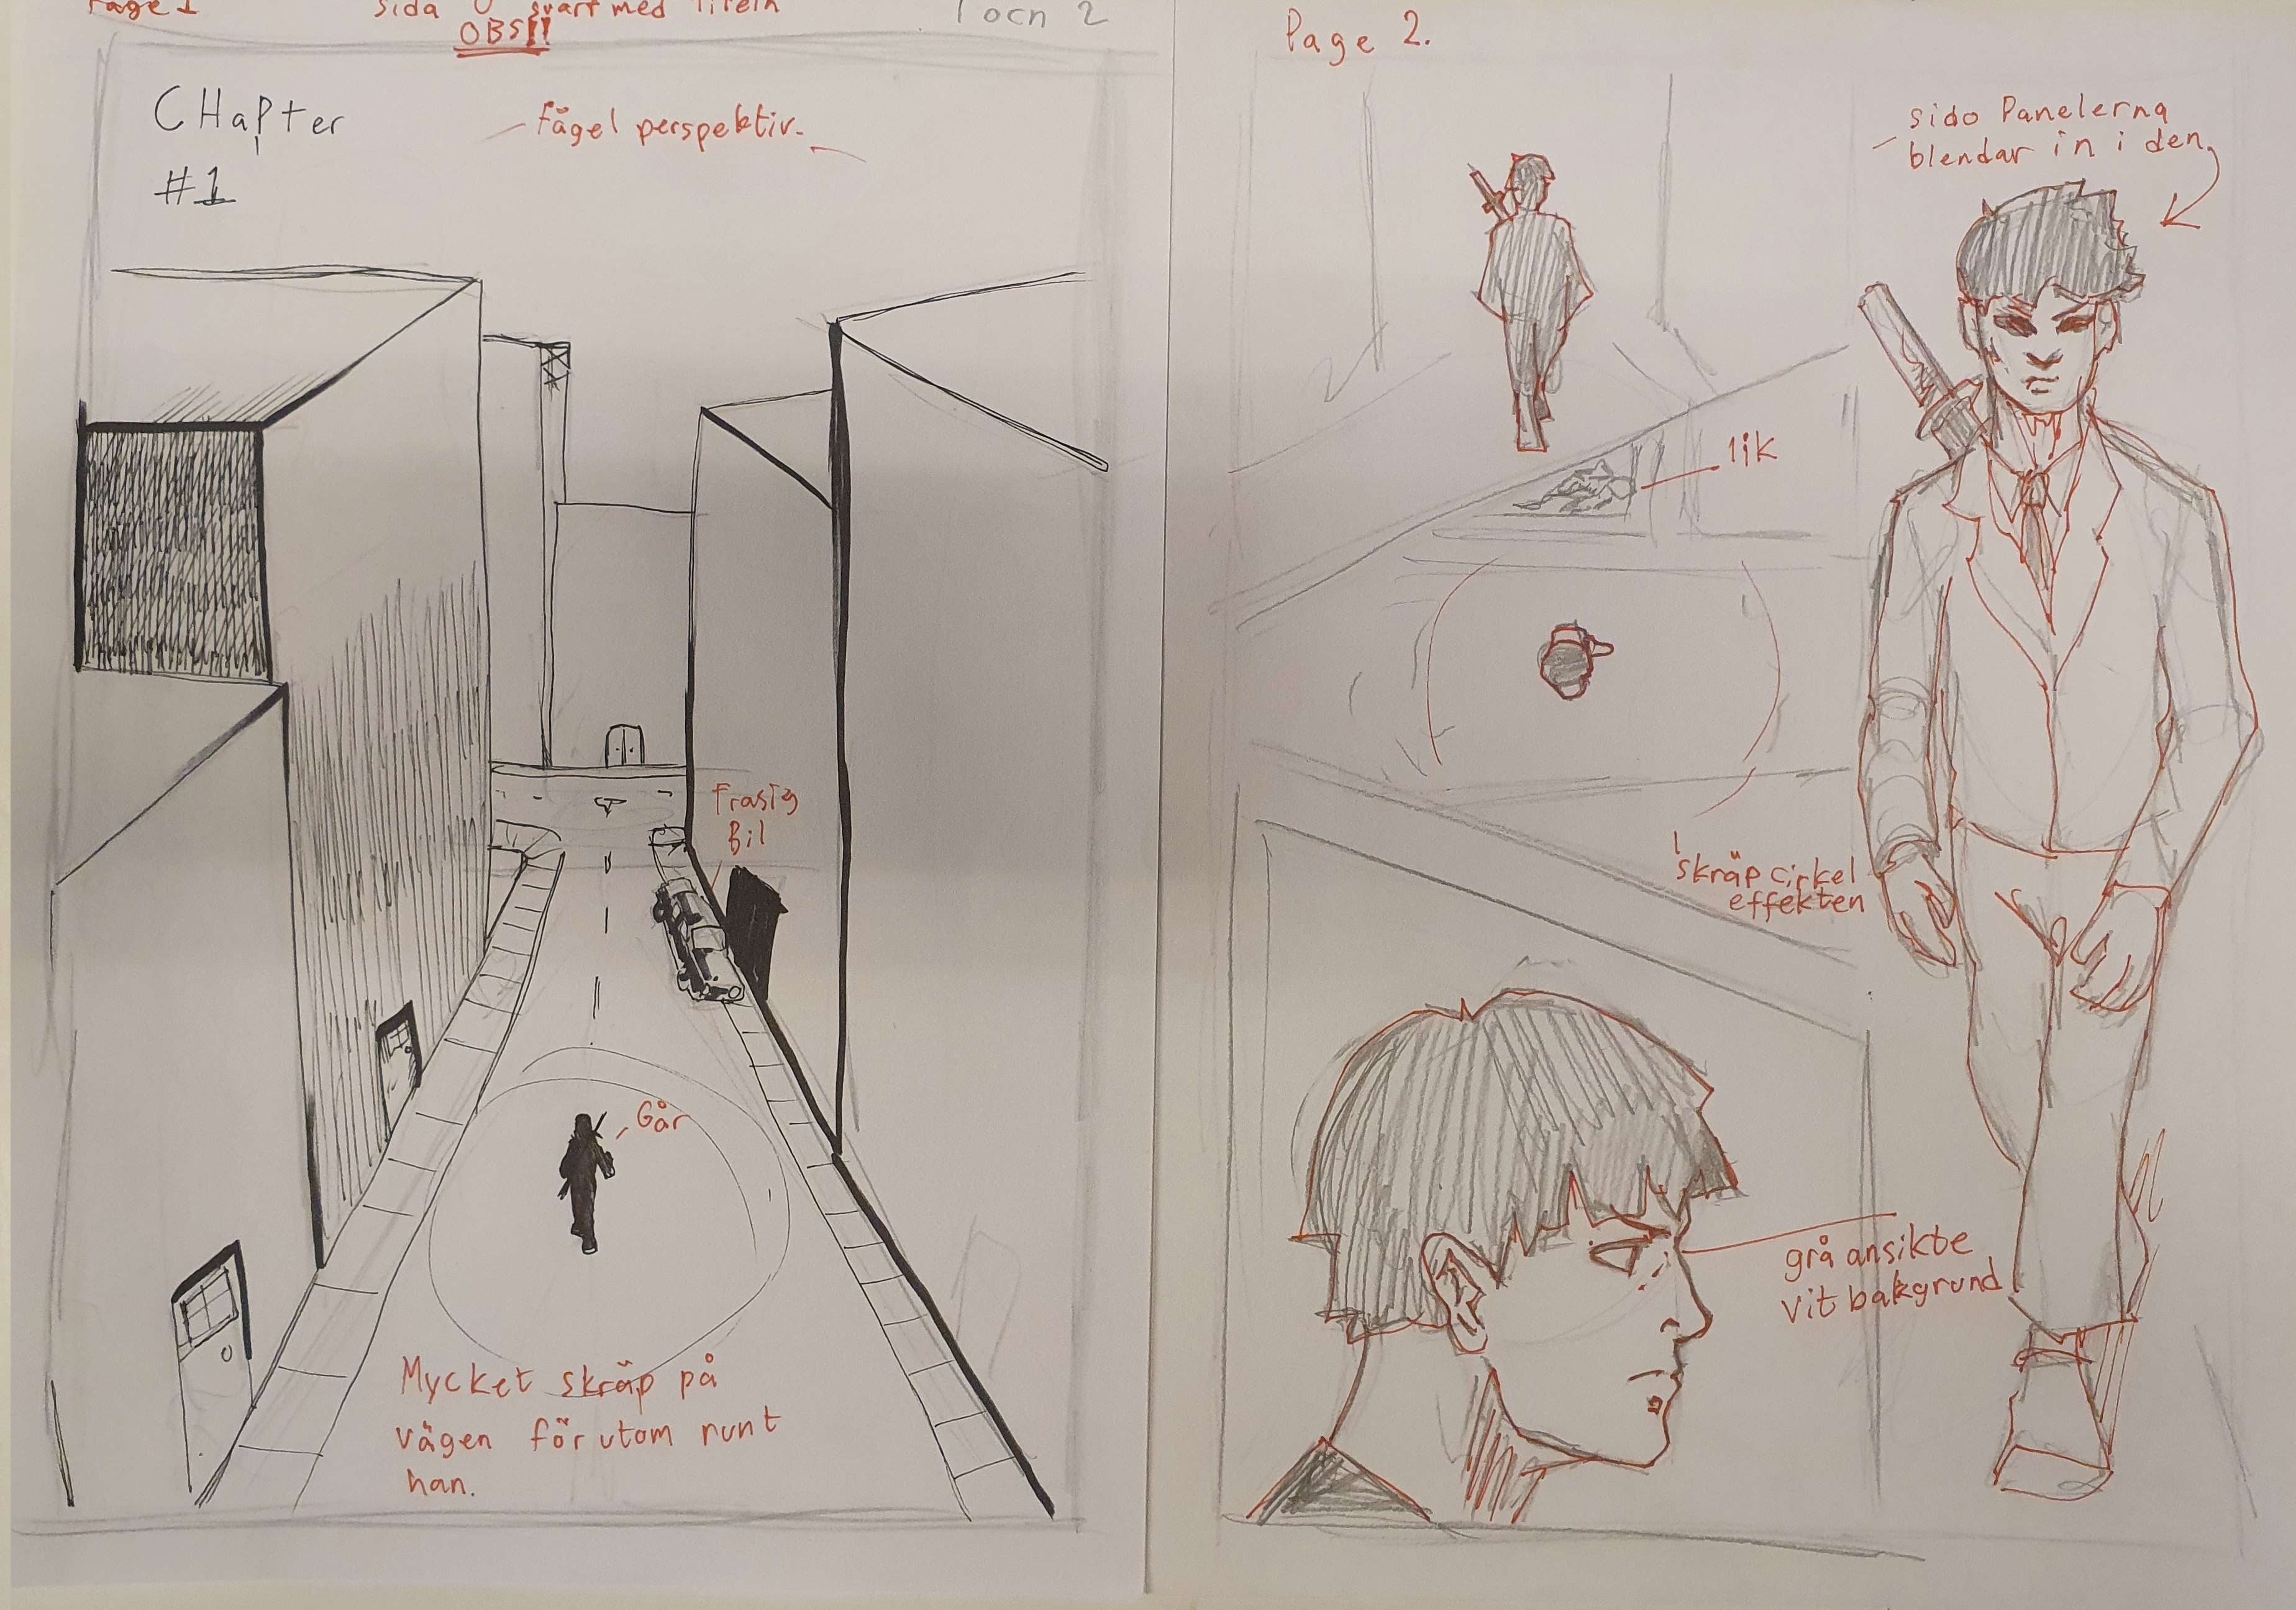 Page 1
sida 0 svart med titeln
OBS!!
1 och 2
CHapter
#1
fågel perspektiv.
Frasig
Bil
Går
Mycket skräp på
vägen förutom runt
han.
Page 2.
sido Panelerna
blendar in i den
lik
skräp cirkel
effekten
grå ansikte
vit bakgrund